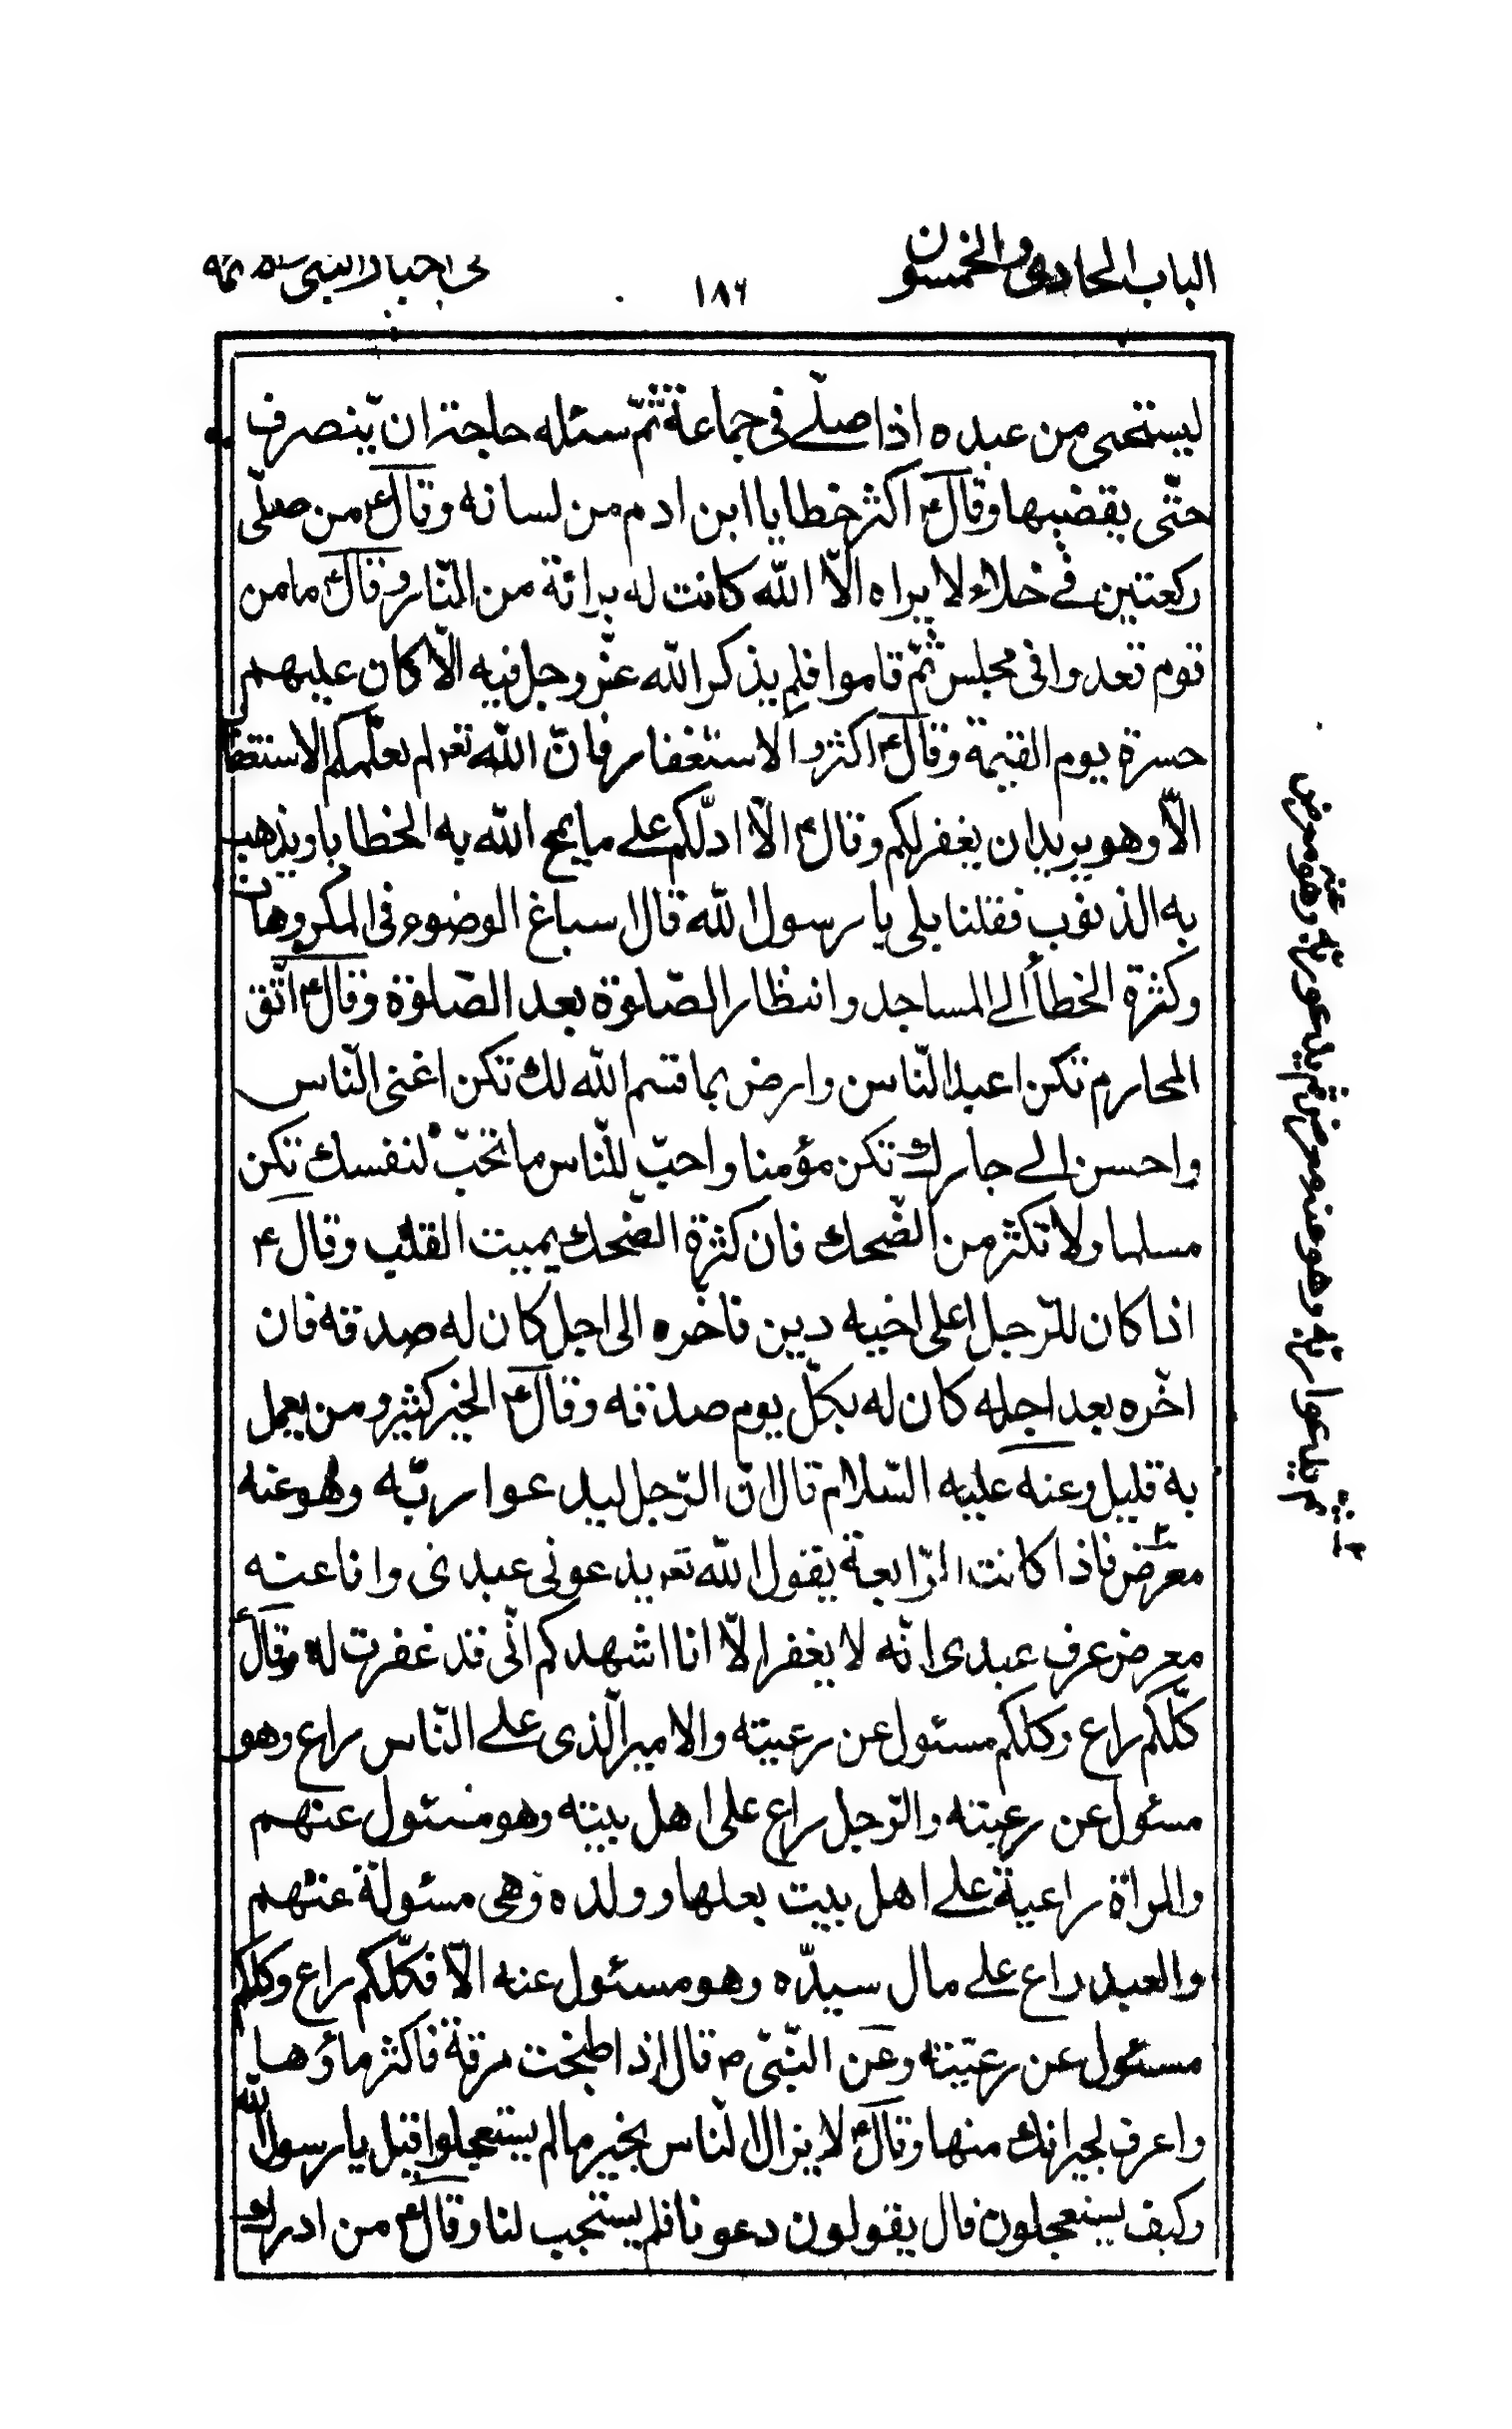 الباب الحادى والخمسون
١٨٦
فى اخبار النبى
ليستحى من عبده اذا صلّے فى جماعة ثمّ سئله حاجة ان ينصرف
حتّى يقضيها وقال ع اكثر خطايا ابن ادم من لسانه وقال ع من صلّى
ركعتين فے خلاء لا يراه الّا الله كانت له برائة من النّار وقال ع ما من
قوم قعدوا فى مجلس ثمّ قاموا فلم يذكر الله عزّ وجل فيه الّا كان عليهم
حسرة يوم القيمة وقال ع اكثروا الاستغفار فانّ الله تعر لم يعلّمكم الاستغفار
الّا وهو يريد ان يغفر لكم وقال ع الّا ادلّكم علے ما يمح الله به الخطايا ويذهب
به الذنوب فقلنا بلى يا رسول الله قال اسباغ الوضوء فى المكروهات
وكثرة الخطأ الے المساجد وانتظار الصّلوة بعد الصّلوة وقال ع اتّق
المحارم تكن اعبد النّاس وارض بما قسم الله لك تكن اغنى النّاس
واحسن الے جارك تكن مؤمنا واحبّ للنّاس ما تحبّ لنفسك تكن
مسلما ولا تكثر من الضّحك فان كثرة الضّحك يميت القلب وقال ع
اذا كان للرّجل على اخيه دين فاخّره الى اجل كان له صدقه فان
اخّره بعد اجله كان له بكلّ يوم صدقه وقال ع الخير كثير ومن يعمل
به قليل وعنه عليه السّلام قال انّ الرّجل ليدعوا ربّه وهو عنه
معرض فاذا كانت الرّابعة يقول الله تعر يدعونى عبدى وانا عنه
معرض عرف عبدى انّه لا يغفر الّا انا اشهدكم انّى قد غفرت له وقال ع
كلّكم راع وكلكم مسئول عن رعيته والامير الّذى علے النّاس راع وهو
مسئول عن رعيته والرّجل راع على اهل بيته وهو مسئول عنهم
والمراة راعية علے اهل بيت بعلها وولده وهى مسئولة عنهم
والعبد راع علے مال سيدّه وهو مسئول عنه الّا فكلّكم راع وكلكم
مسئول عن رعيّته وعن النّبّى ص قال اذا طبخت مرقة فاكثر ماؤها
واعرف لجيرانك منها وقال ع لا يزال النّاس بخير ما لم يستعجلوا قيل يا رسول الله
وكيف يستعجلون قال يقولون دعونا فلم يستجب لنا وقال ع من ادرك
ثم يدعوا ربّه وهو عنه معرض ثم يدعو ربّه وهو عنه معرض